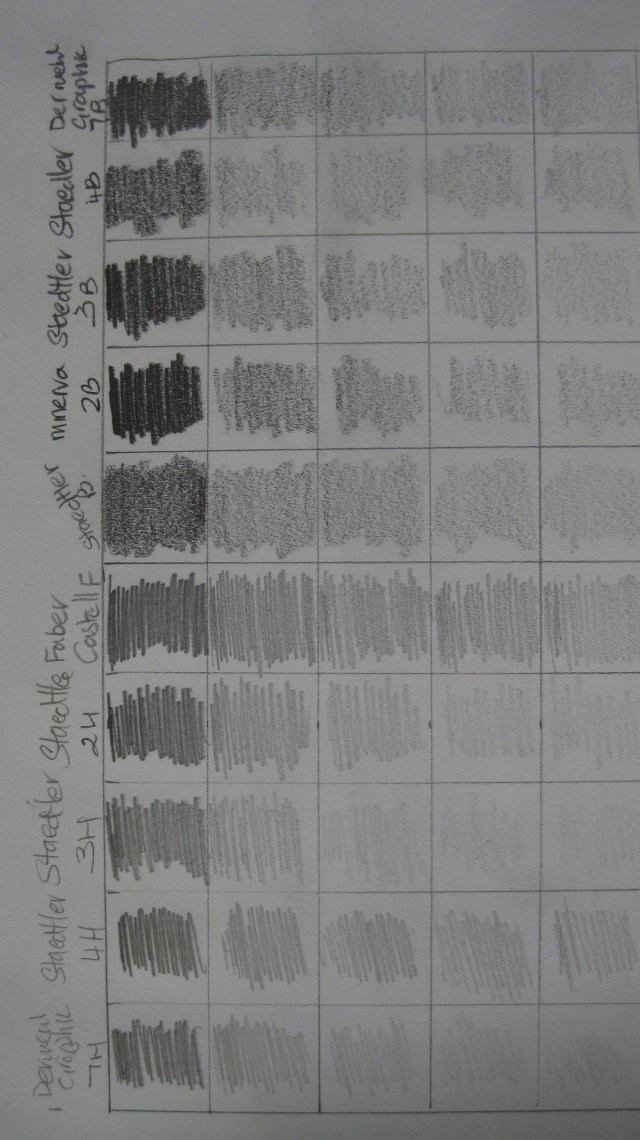 Derwent
Graphic
7B
Staedtler
4B
Staedtler
3B
minerva
2B
Staedtler
B.
Faber
Castell F
Staedtler
2H
Staedtler
3H
Staedtler
4H
Derwent
Graphic
7H